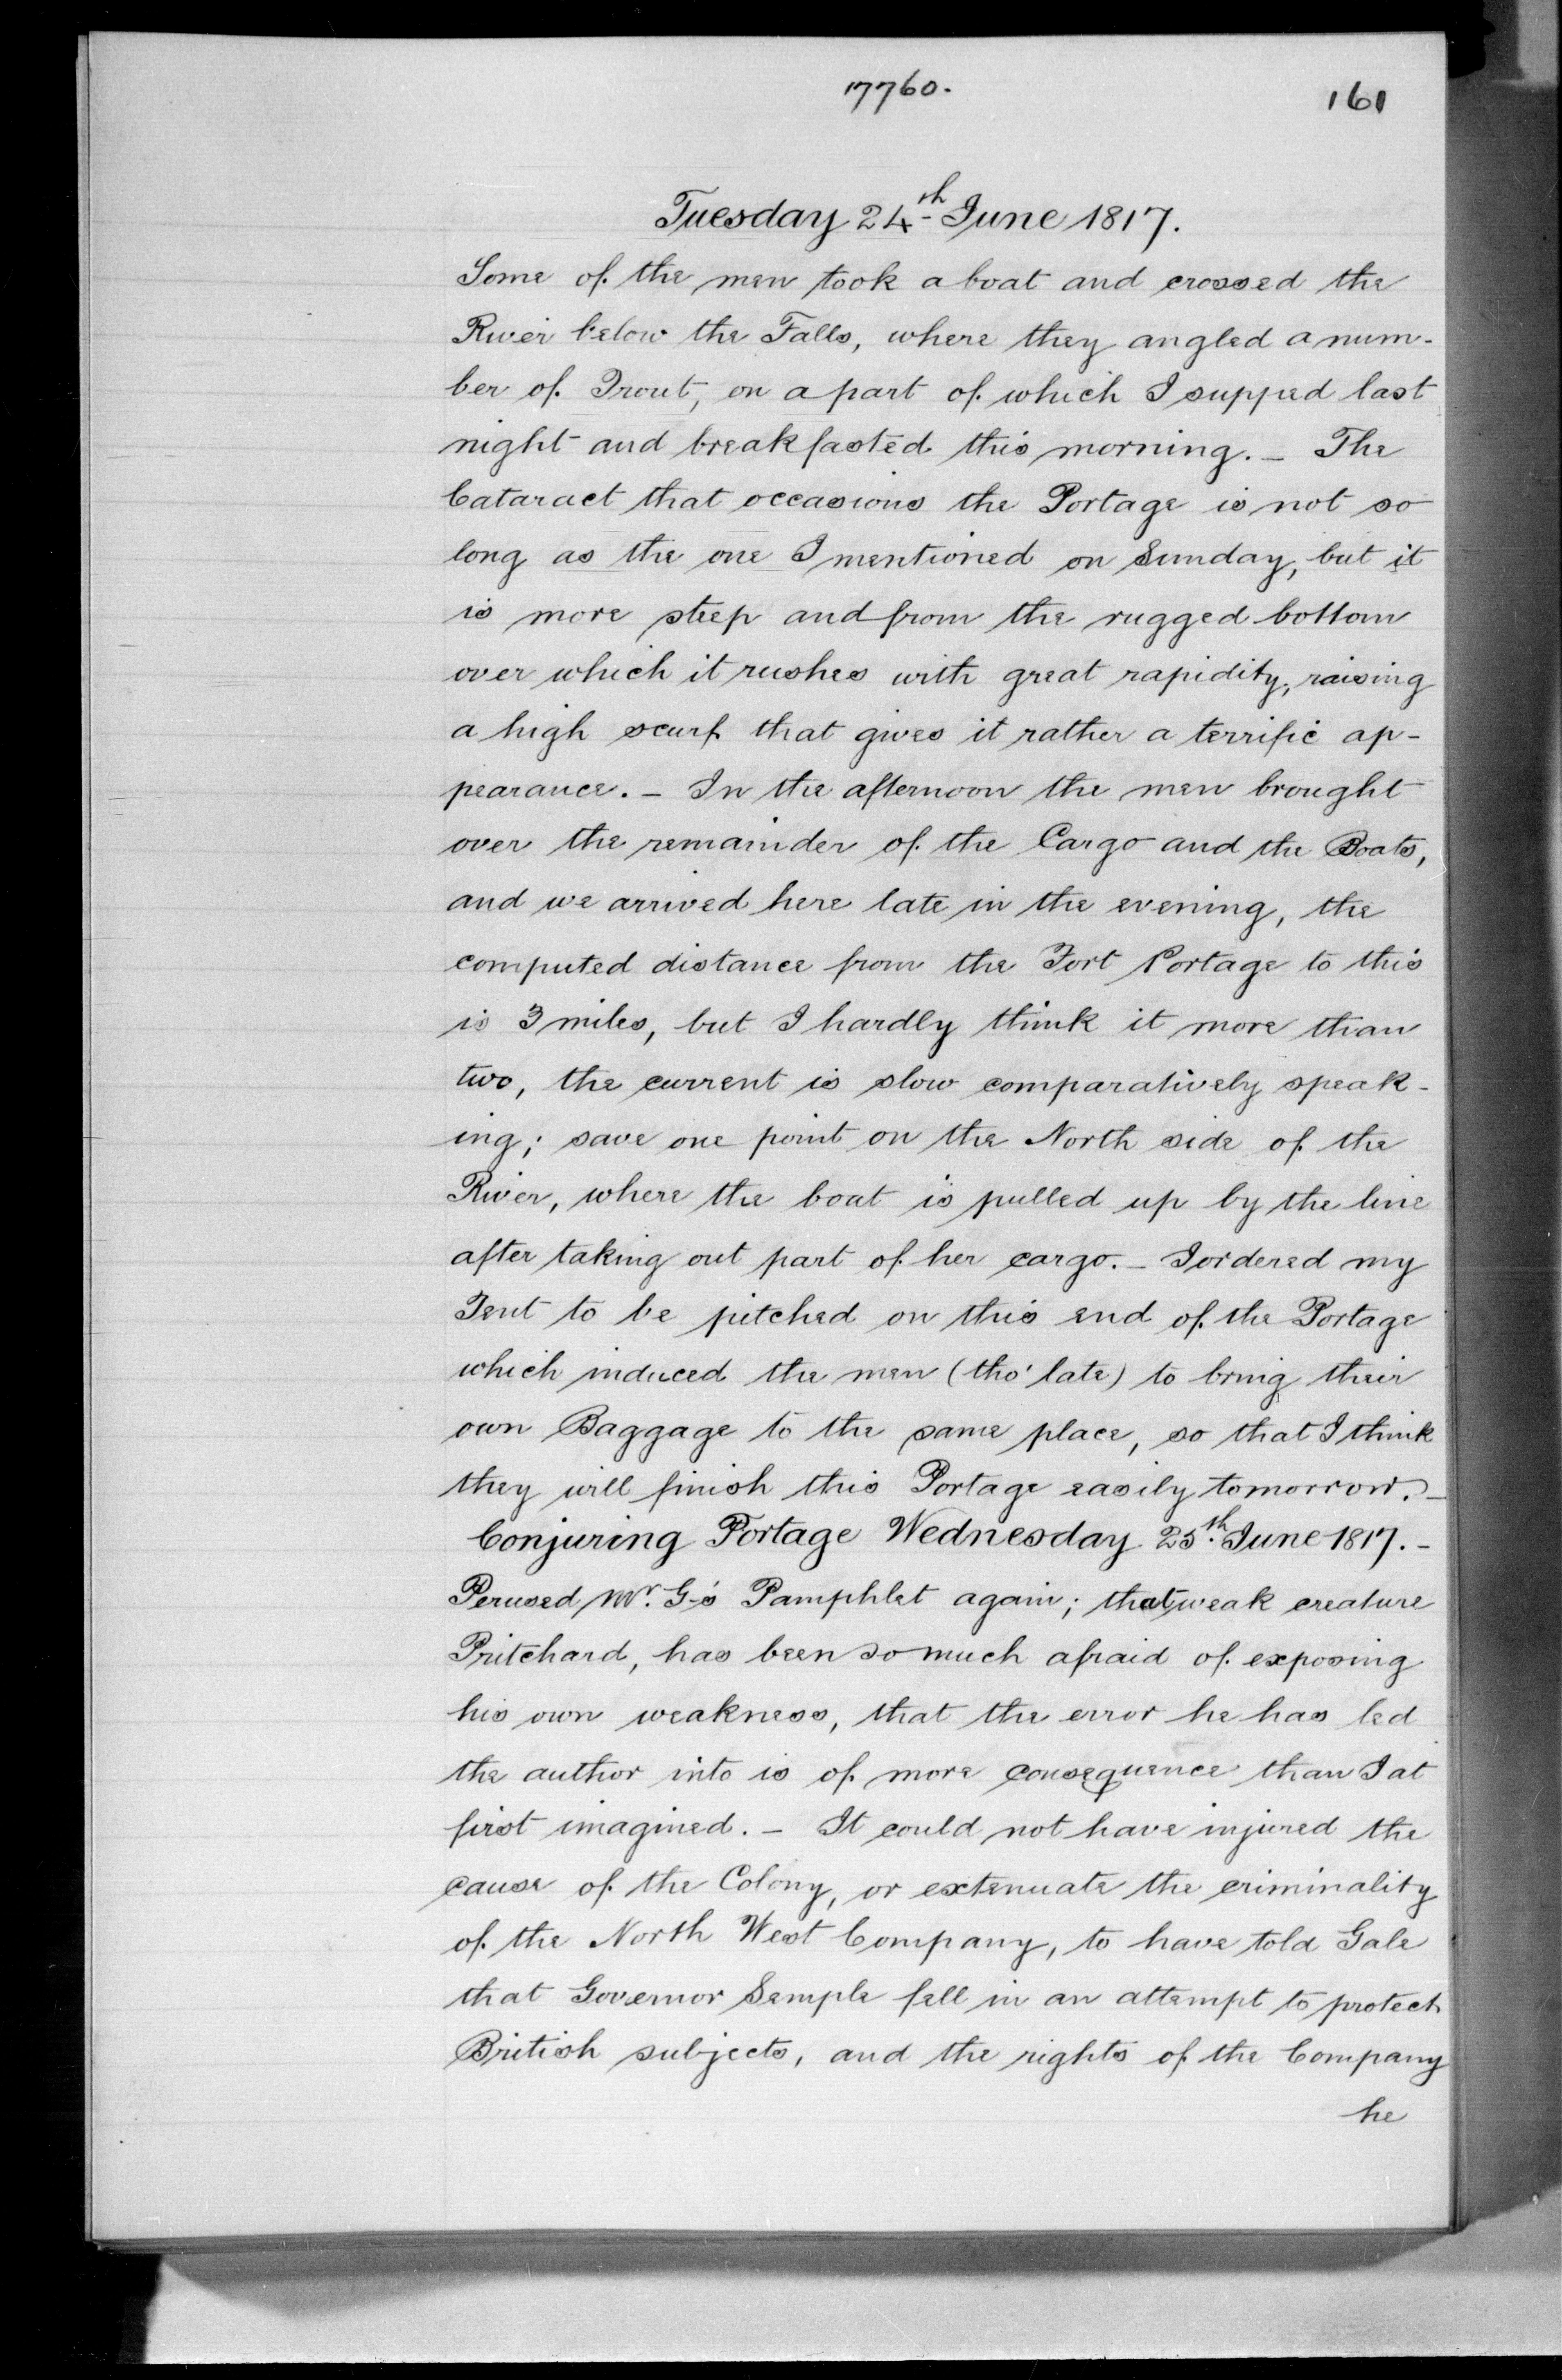 17760.
161
Tuesday 24th June 1817.
Some of the men took a boat and crossed the
River below the Falls, where they angled a num-
ber of Trout, on a part of which I supped last
night and breakfasted this morning. – The
Cataract that occasions the Portage is not so
long as the one I mentioned on Sunday, but it
is more steep and from the rugged bottom
over which it rushes with great rapidity, raising
a high scurf that gives it rather a terrific ap-
pearance. – In the afternoon the men brought
over the remainder of the Cargo and the Boats,
and we arrived here late in the evening, the
computed distance from the Fort Portage to this
is 3 miles, but I hardly think it more than
two, the current is slow comparatively speak-
ing; save one point on the North side of the
River, where the boat is pulled up by the line
after taking out part of her cargo. – I ordered my
Tent to be pitched on this end of the Portage
which induced the men (tho' late) to bring their
own Baggage to the same place, so that I think
they will finish this Portage easily tomorrow. –
Conjuring Portage Wednesday 25th June 1817. –
Perused Mr. G-'s Pamphlet again; that weak creature
Pritchard, has been so much afraid of exposing
his own weakness, that the error he has led
the author into is of more consequence than I at
first imagined. – It could not have injured the
cause of the Colony, or extenuate the criminality
of the North West Company, to have told Gale
that Governor Semple fell in an attempt to protect
British subjects, and the rights of the Company
he